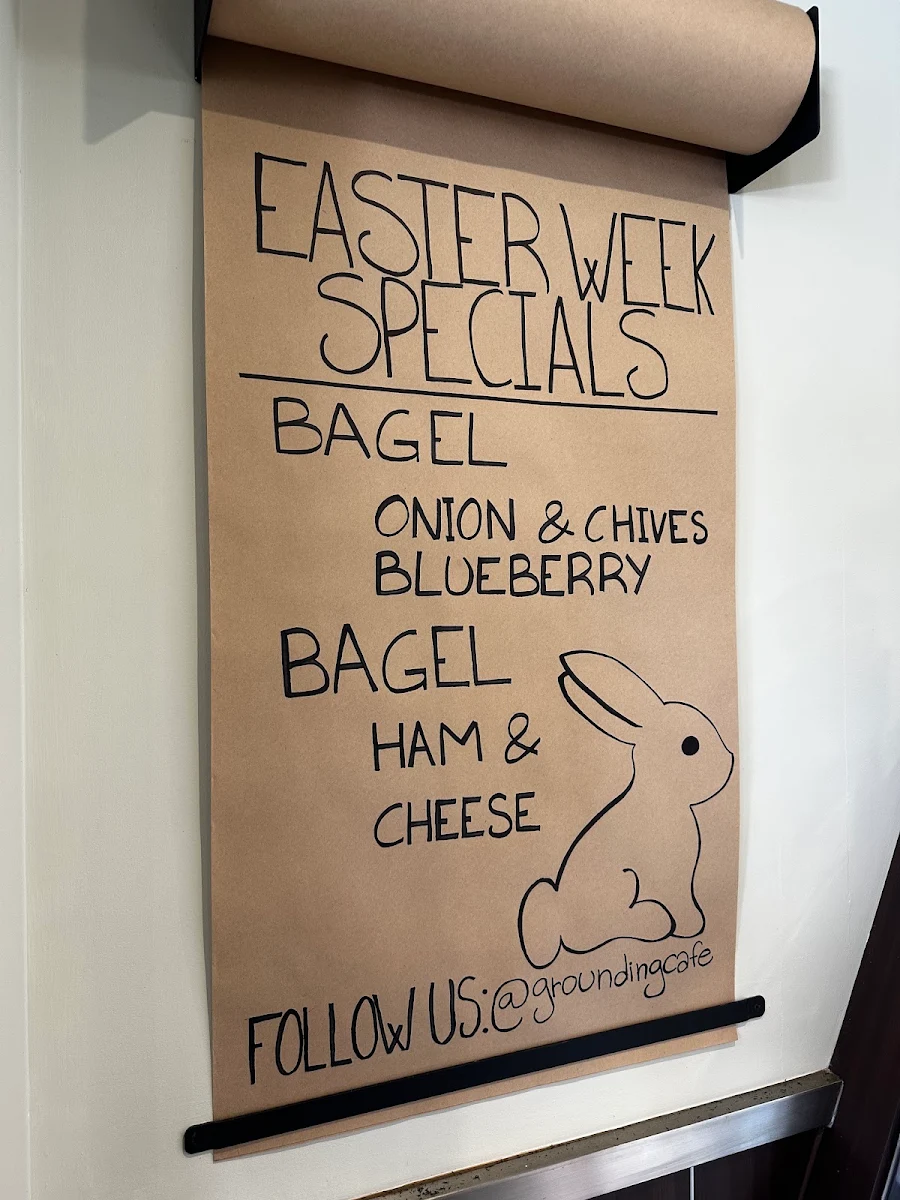 EASTER WEEK
SPECIALS
BAGEL
ONION & CHIVES
BLUEBERRY
BAGEL
HAM &
CHEESE
FOLLOW US:@groundingcafe